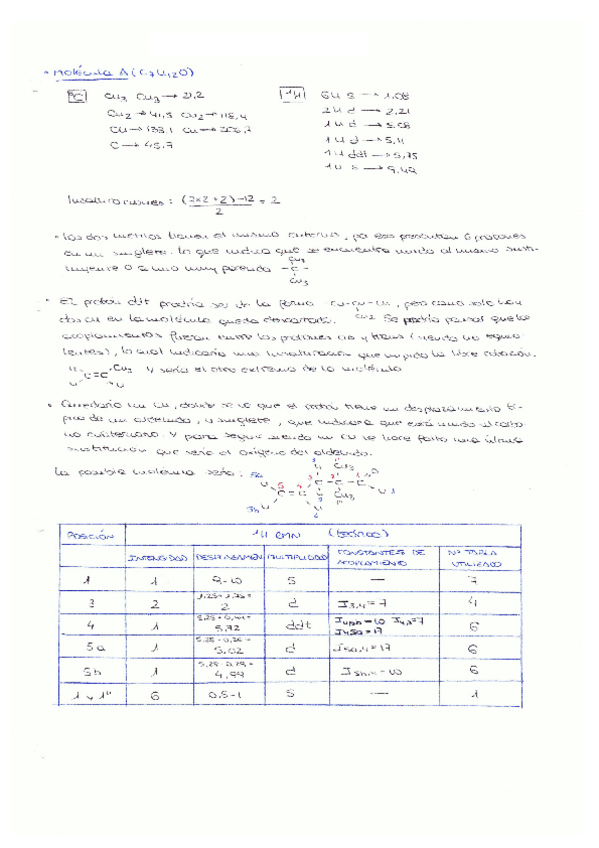 • Molécula A (C7H12O)
13C CH3 CH3 → 21,2
CH2 → 41,5 CH2 → 118,4
CH → 133,1 CH →
C → 45,7
1H 6H s → 1,08
2H d → 2,21
1H d → 5,08
1H d → 5,11
1H ddt → 5,75
1H s → 9,49
Insaturaciones: (2x7+2)-12 / 2 = 2
• Los dos metilos tienen el mismo entorno, por eso presentan 6 protones
en un singlete. Lo que indica que se encuentra unido al mismo susti-
tuyente o a uno muy parecido CH3 -C- CH3
• El protón ddt podría ser de la forma -CH-CH-CH, pero como solo hay
CH2
dos CH en la molécula queda descartada. Se podría pensar que los
acoplamientos fueran entre los protones cis y trans (siendo no equiva-
lentes), lo cual indicaría una insaturación que impida la libre rotación.
H C=C CH2 H H Y sería el otro extremo de la molécula
• Quedaría un CH, donde se ve que el protón tiene un desplazamiento tí-
pico de un aldehído, y singlete, que indicaría que está unido al carbo-
no cuaternario. Y para seguir siendo un CH le hace falta una última
sustitución que sería el oxígeno del aldehído.
La posible molécula sería:
POSICIÓN 1H RMN (TEÓRICO)
INTENSIDAD DESPLAZAMIEN MULTIPLICIDAD CONSTANTES DE ACOPLAMIENTO Nº TABLA UTILIZADO
1 1 9-10 s — 7
3 2 2 d J3,4=7 4
4 1 5,72 ddt J4,5b=10 J4,3=7 J4,5a=17 6
5a 1 5,02 d J5a,4=17 6
5b 1 4,99 d J5b,4=10 6
1' y 1" 6 0,5-1 s — 1